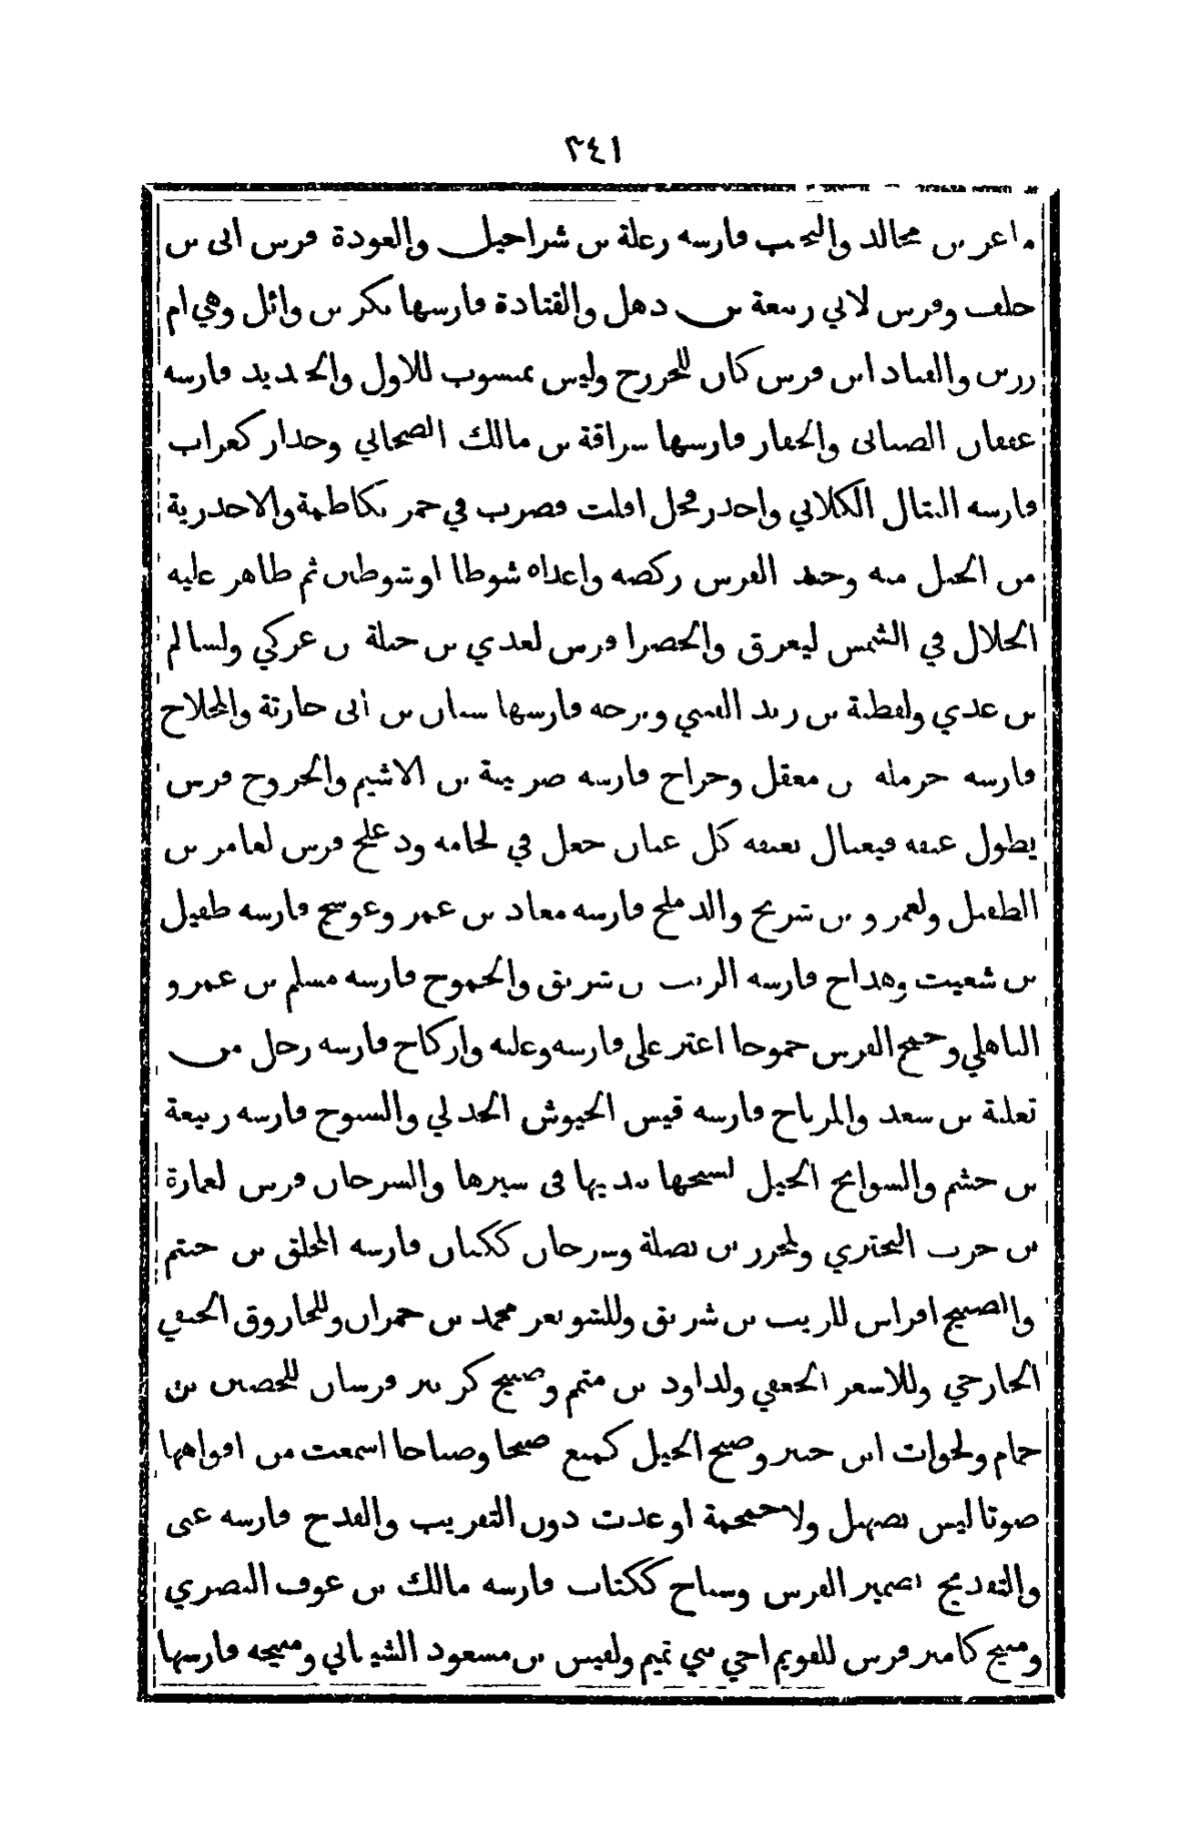 ٢٤١
ماعز بن مجالد والنحيب فارسه رعلة بن شراحيل والعودة فرس ابى بن
خلف وفرس لابي ربيعة بن ذهل والقتادة فارسها بكر بن وائل وهي ام
والقياد ابن فرس كان للخزرج وليس بمنسوب للاول والحديد فارسه
عقفان الضبابى والحفار فارسها سراقة بن مالك الصحابي وحدار كغراب
فارسه القتال الكلابي واخدر فحل افلت فضرب في حمر بكاظمة والاخدرية
من الخيل منه وحنذ الفرس ركضه واعداه شوطا او شوطين ثم ظاهر عليه
الجلال في الشمس ليعرق والخضرا فرس لعدي بن جبلة بن عركي ولسالم
بن عدي ولقطبة بن زيد القيني فارسها سنان بن أبى حارثة والمجلاح
فارسه حرمله بن معقل وجراح فارسه ضريبة بن الاشيم والخروج فرس
يطول عنقه فيغتال بعنقه كل عنان جعل في لجامه ودعلج فرس لعامر بن
الطفيل ولعمرو بن شريح والدملج فارسه معاذ بن عمر وعوسج فارسه طفيل
بن شعيت وهداج فارسه الريب بن شريق والجموح فارسه مسلم بن عمرو
الباهلي وجمح الفرس جموحا اعتز على فارسه وغلبه واركاح فارسه رجل من
ثعلبة بن سعد والمرياح فارسه قيس الجيوش الجدلي والسبوح فارسه ربيعة
بن جشم والسوابح الخيل لسبحها بيديها فى سيرها والسرحان فرس لعمارة
بن حرب البحتري ولمحرز بن نضلة وسرحان ككتان فارسه المحلق بن حنتم
والصبيح افراس للريب بن شريق وللشويعر محمد بن حمران وللحازوق الحنفي
الخارجي وللاسعر الجعفي ولداود بن متمم وصبيح كزبير فرسان للحصين بن
حمام ولخوات ابن جبير وضبح الخيل كمنع ضبحا وضباحا اسمعت من افواهها
صوتا ليس بصهيل ولا حمحمة او عدت دون التقريب والقدح فارسه غنى
والتقديح تضمير الفرس وسباح ككتاب فارسه مالك بن عوف النصري
ومنيح كامير فرس للقويم اخي بني تميم ولقيس بن مسعود الشيباني ومنيحه فارسها